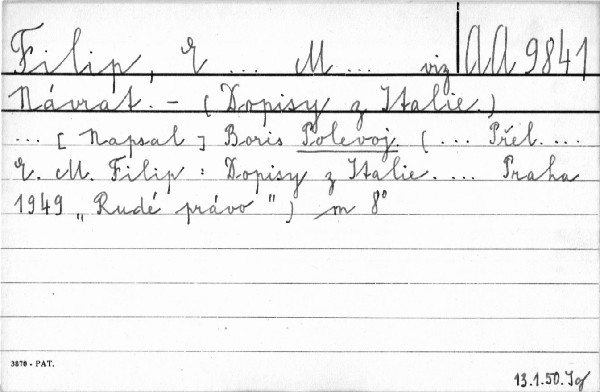 Filip, E ... M ... viz AA 9841
Návrat. - (Dopisy z Italie.)
... [Napsal] Boris Polevoj (... Přel. ...
E. M. Filip: Dopisy z Italie. ... Praha
1949 „Rudé právo") m 8°
3870 - PAT.
13.1.50.